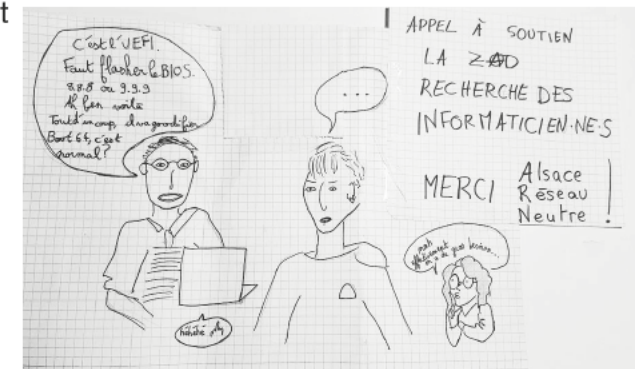 t
C'est l'UEFI.
Faut flasher le BIOS.
8.8.8 ou 9.9.9
Ah ben voilà
Tout d'un coup, il va goodifier
Boot 64, c'est
normal?
...
APPEL À SOUTIEN
LA ZAD
RECHERCHE DES
INFORMATICIEN·NE·S
MERCI Alsace
Réseau
Neutre !
mais
effectivement
on a de gros besoins...
héhéhé